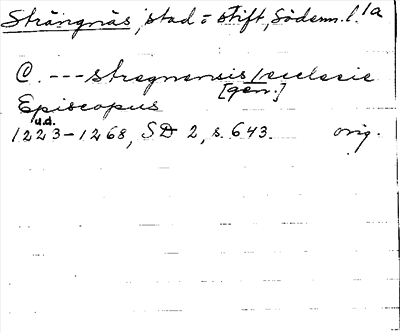 Strängnäs, stad o stift, Södermm. l. 1a
C. --- stregnensis / ecclesie
[gen.]
Episcopus
u.d.
1223-1268, SD 2, s. 643. orig.